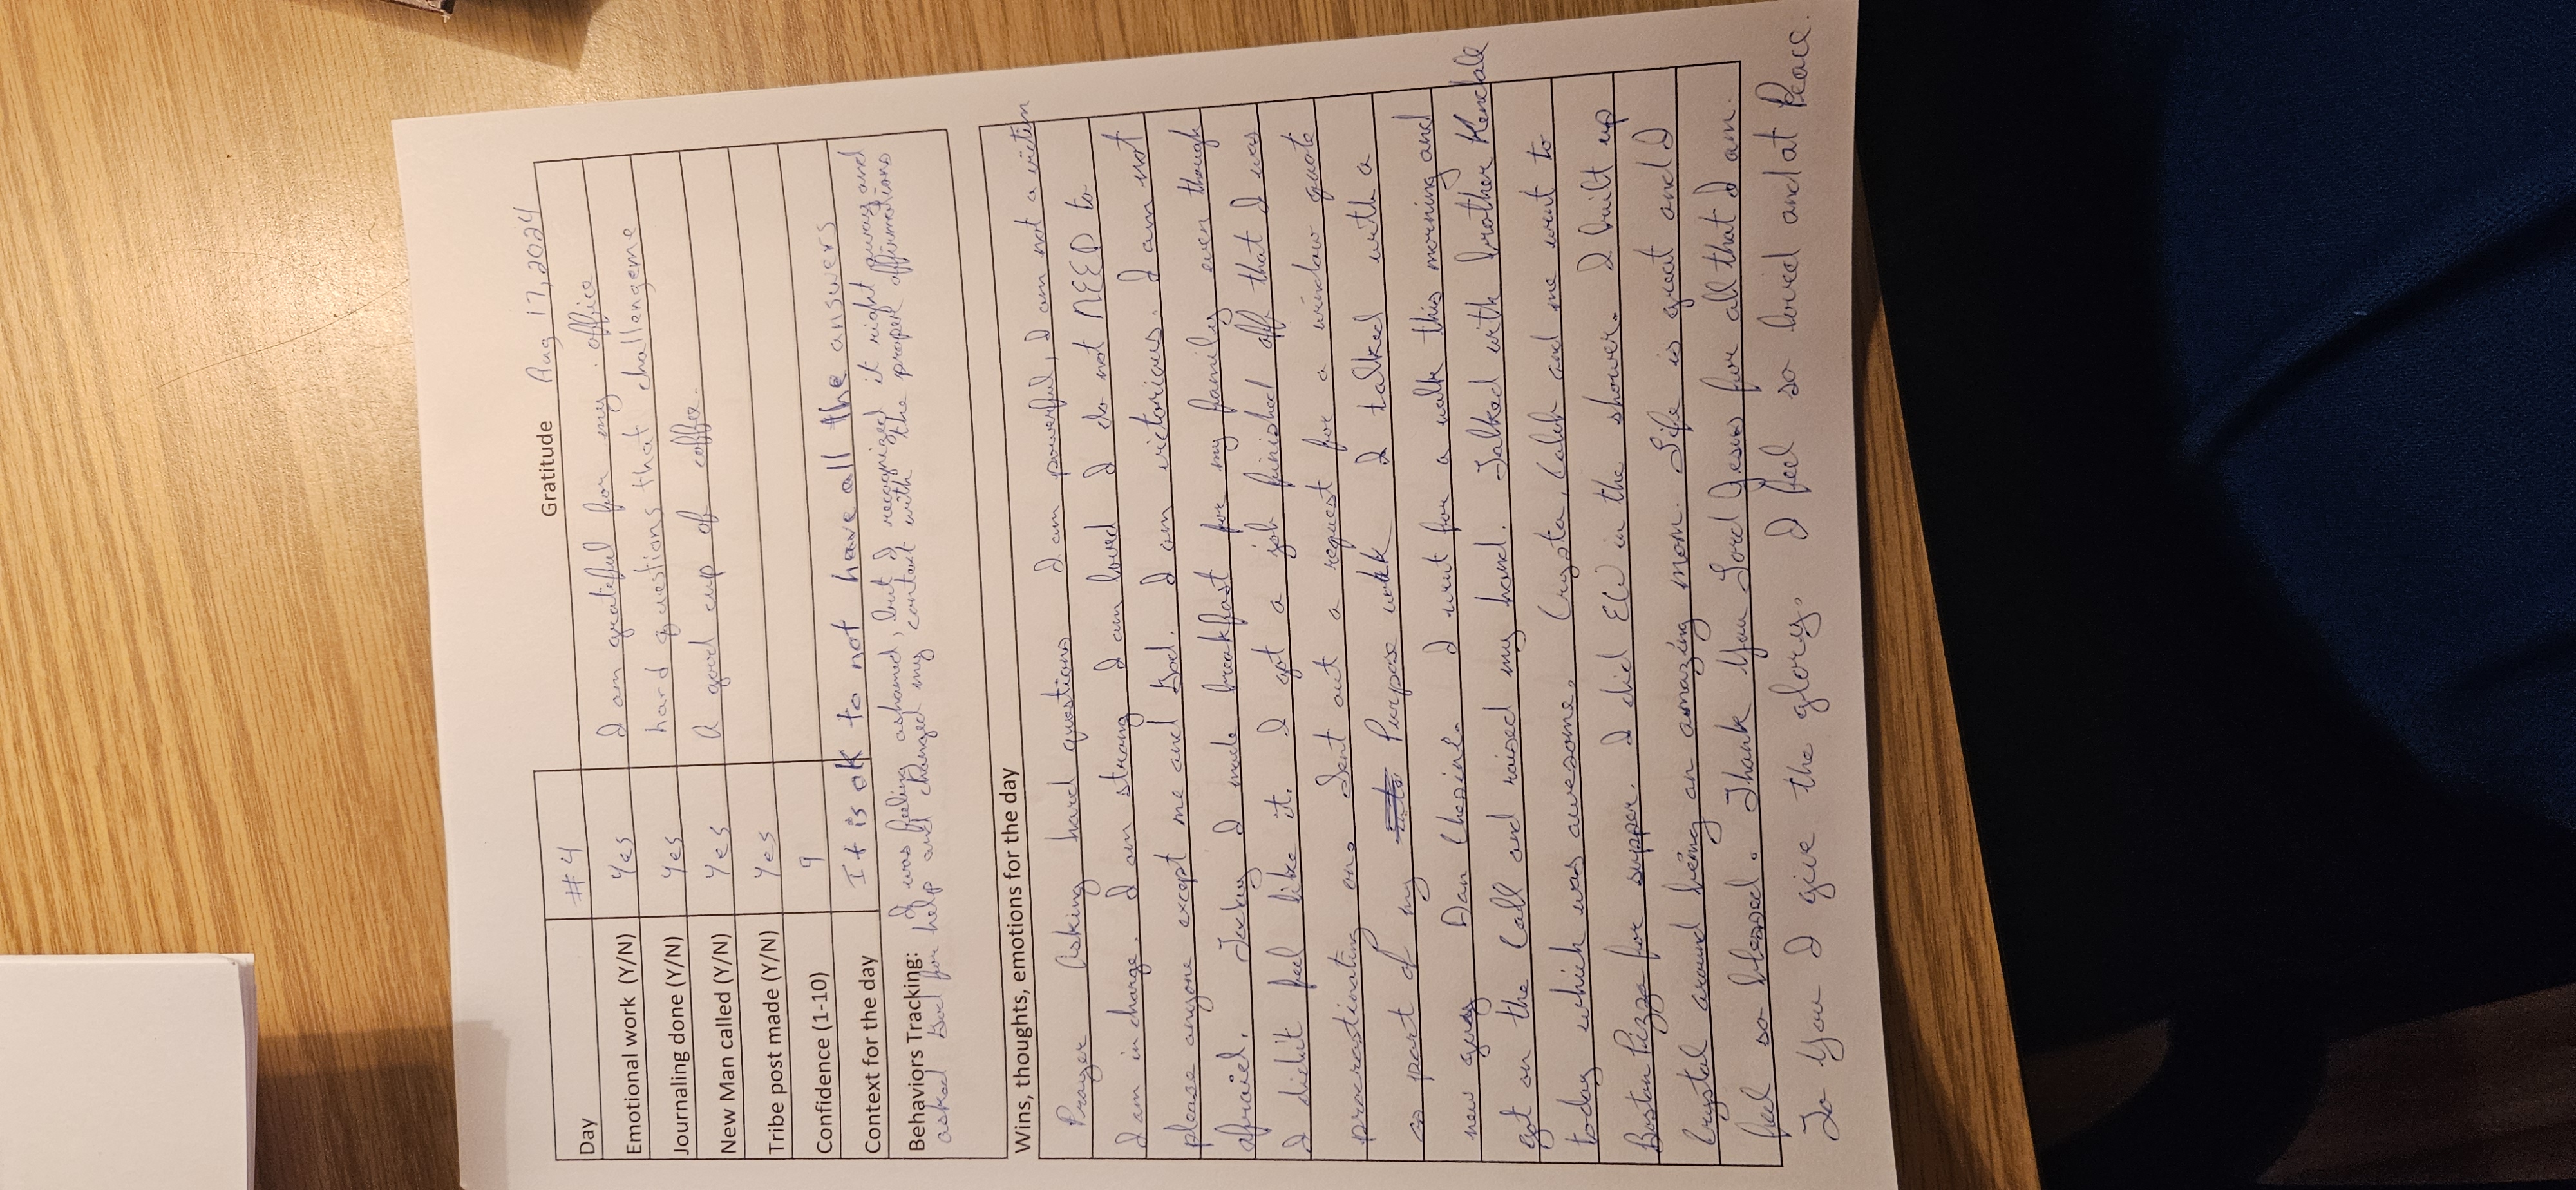 Gratitude Aug 17, 2024
Day #4
Emotional work (Y/N) Yes I am grateful for my office
Journaling done (Y/N) Yes hard questions that challengeme
New Man called (Y/N) Yes A good cup of coffee.
Tribe post made (Y/N) Yes
Confidence (1-10) 9
Context for the day It is ok to not have all the answers
Behaviors Tracking: I was feeling ashamed, but I recognized it right away and
asked God for help and changed my context with the proper affirmations
Wins, thoughts, emotions for the day
Prayer Asking hard questions I am powerful, I am not a victim
I am in charge. I am strong I am loved I do not NEED to
please anyone except me and God. I am victorious. I am not
afraied. Today I made breakfast for my family even though
I didn't feel like it. I got a job finished off that I was
procrastinating on. Sent out a request for a window quote
as part of my Purpose work I talked with a
new guy Dan I went for a walk this morning and
got on the Call and raised my hand. Talked with brother Kendall
today which was awesome. Crysta, Caleb and me went to
Boston Pizza for supper. I did EW in the shower. I built up
Crystal around being an amazing mom. Life is great and I
feel so blessed. Thank You Lord Jesus for all that I am.
To You I give the glory. I feel so loved and at Peace.